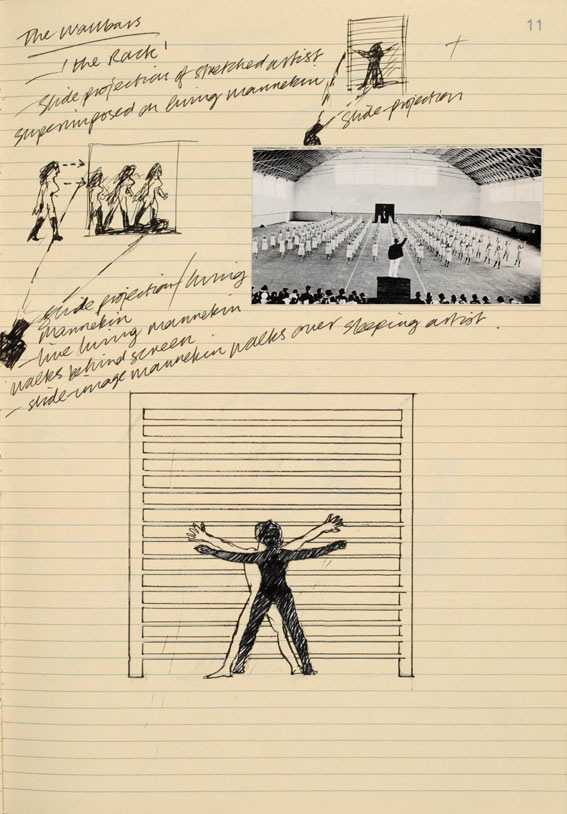 11
The Wallbars
– 'the Rack'
– Slide projection of stretched artist
superimposed on living mannekin
Slide projection
+
– Slide projection / living
mannekin
– live living mannekin
walks behind screen
– slide-image mannekin walks over sleeping artist.